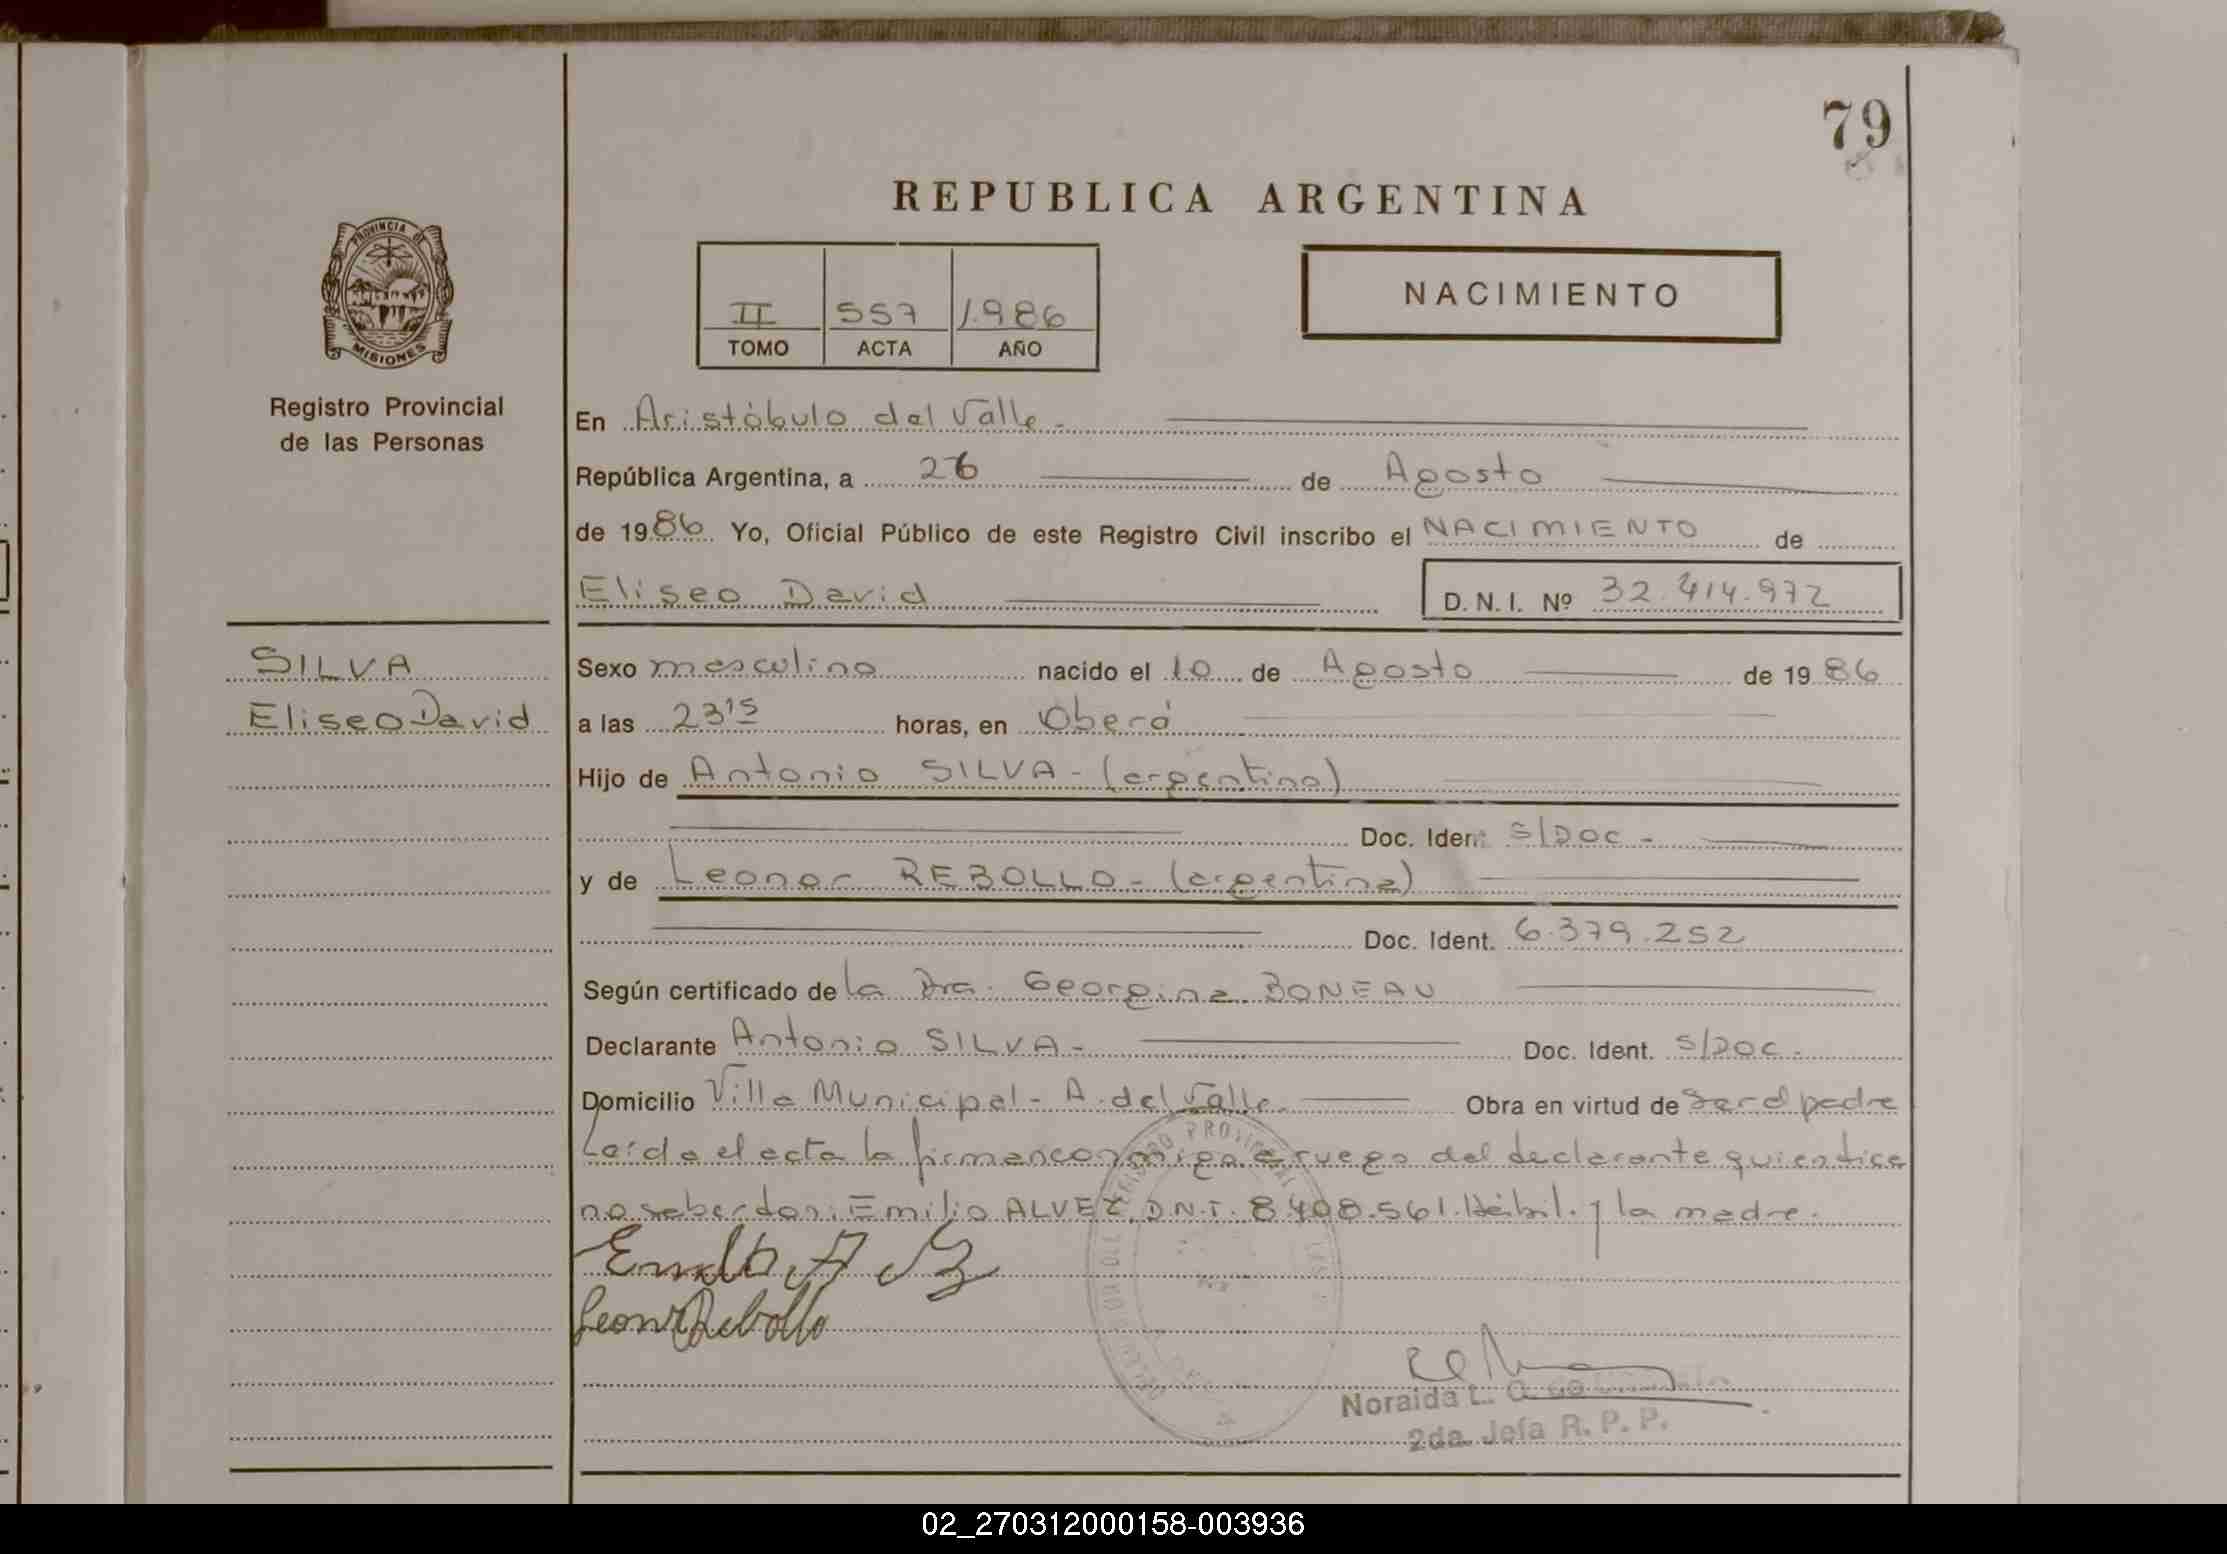 79
REPUBLICA ARGENTINA
PROVINCIA DE
MISIONES
Registro Provincial
de las Personas
II 557 1.986
TOMO ACTA AÑO
NACIMIENTO
En Aristóbulo del Valle -
República Argentina, a 26 de Agosto
de 1986 Yo, Oficial Público de este Registro Civil inscribo el NACIMIENTO de
Eliseo David D. N. I. Nº 32.414.972
SILVA
Eliseo David
Sexo masculino nacido el 10 de Agosto de 1986
a las 23 15 horas, en Oberá
Hijo de Antonio SILVA - (argentino)
Doc. Ident S/DOC -
y de Leonor REBOLLO - (argentina)
Doc. Ident. 6.379.252
Según certificado de la Dra. Georgina BONEAU
Declarante Antonio SILVA - Doc. Ident. S/DOC -
Domicilio Villa Municipal - A. del Valle Obra en virtud de ser el padre
Leída el acta la firman conmigo a ruego del declarante quien dice
no saber Emilio ALVEZ D.N.I. 8.408.561. Hábil. y la madre.
Leonor Rebollo
Noraida L.
2da. Jefa R. P. P.
02_270312000158-003936